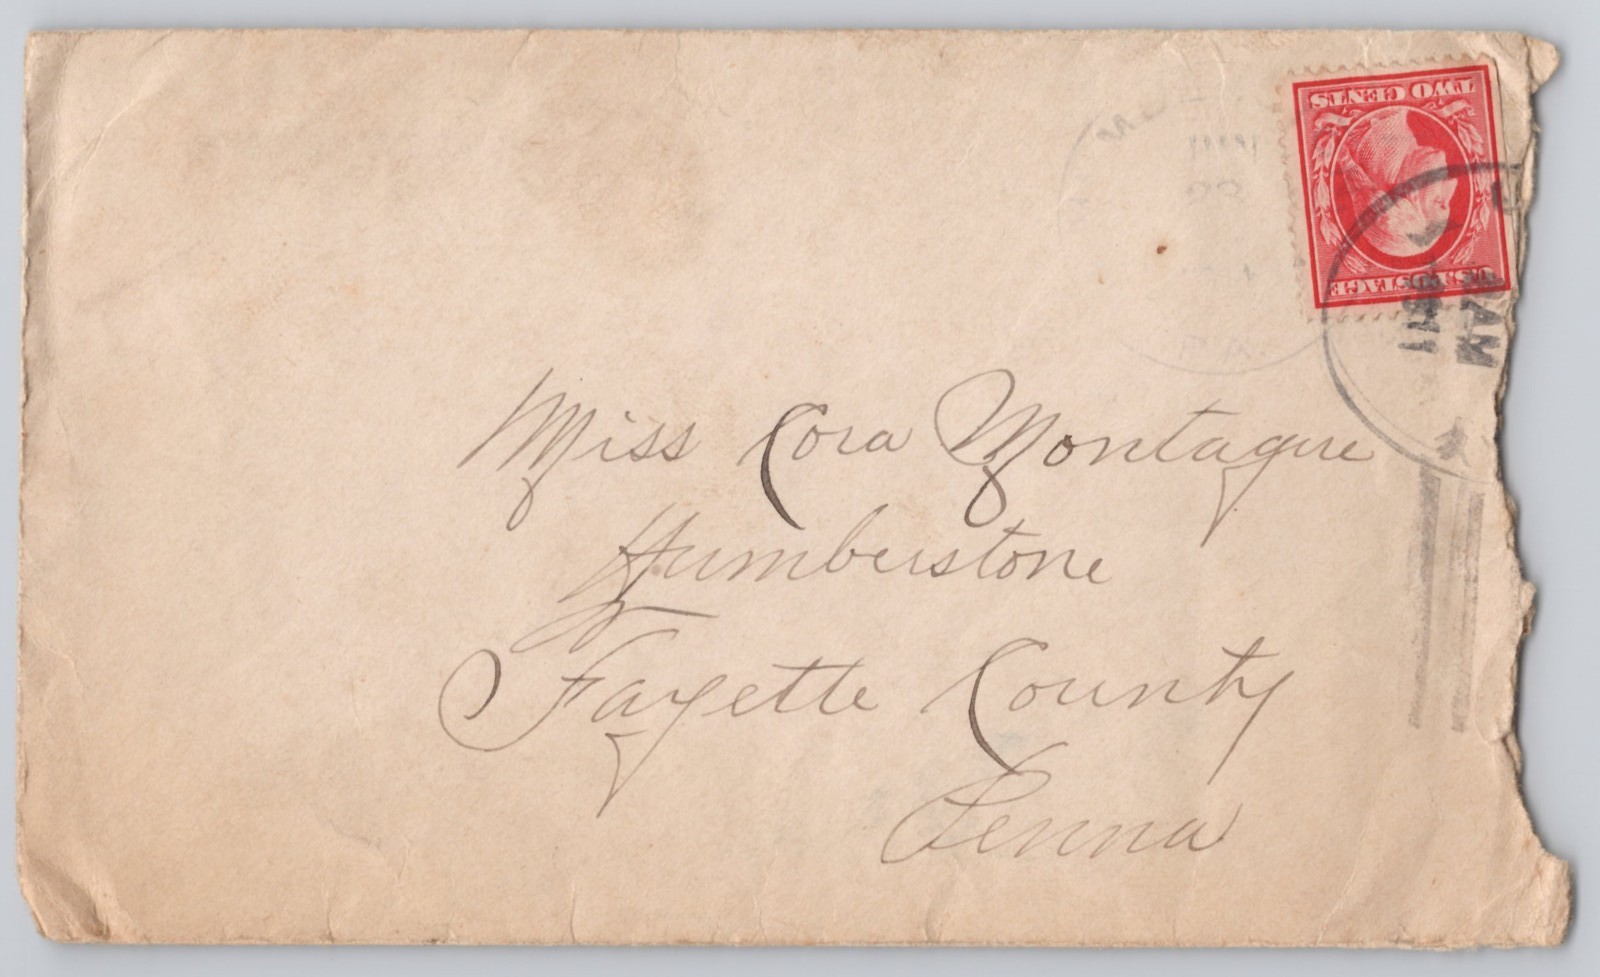 TWO CENTS
U.S. POSTAGE
AM
PA.
Miss Cora Montague
Humberstone
Fayette County
Penna